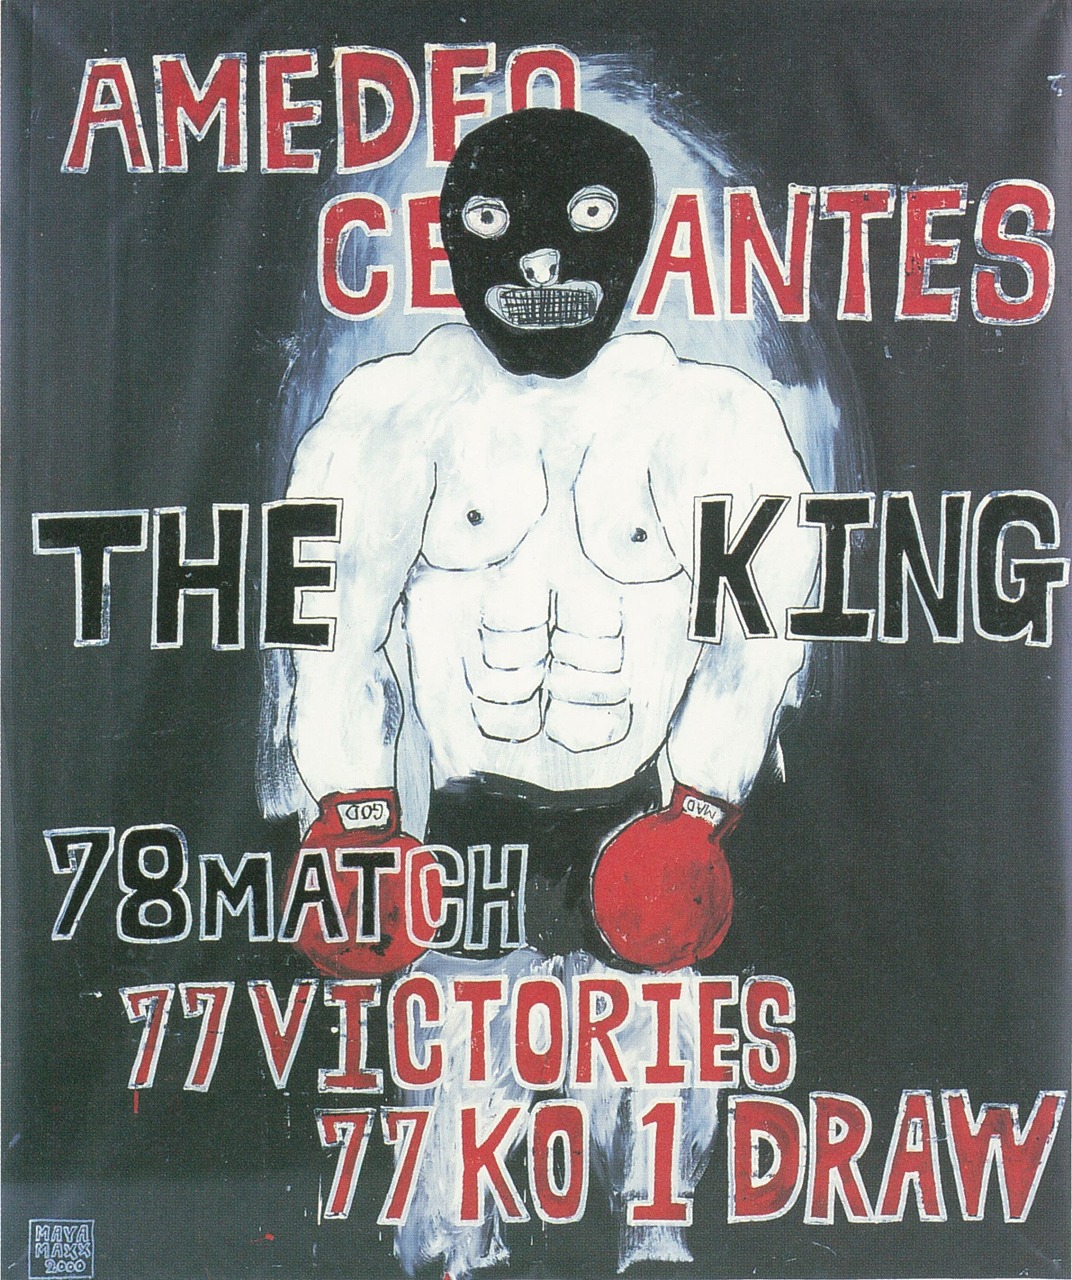 AMEDEO
CE ANTES
THE KING
GOD
MAD
78 MATCH
77 VICTORIES
77 KO 1 DRAW
MAYA
MAXX
2000